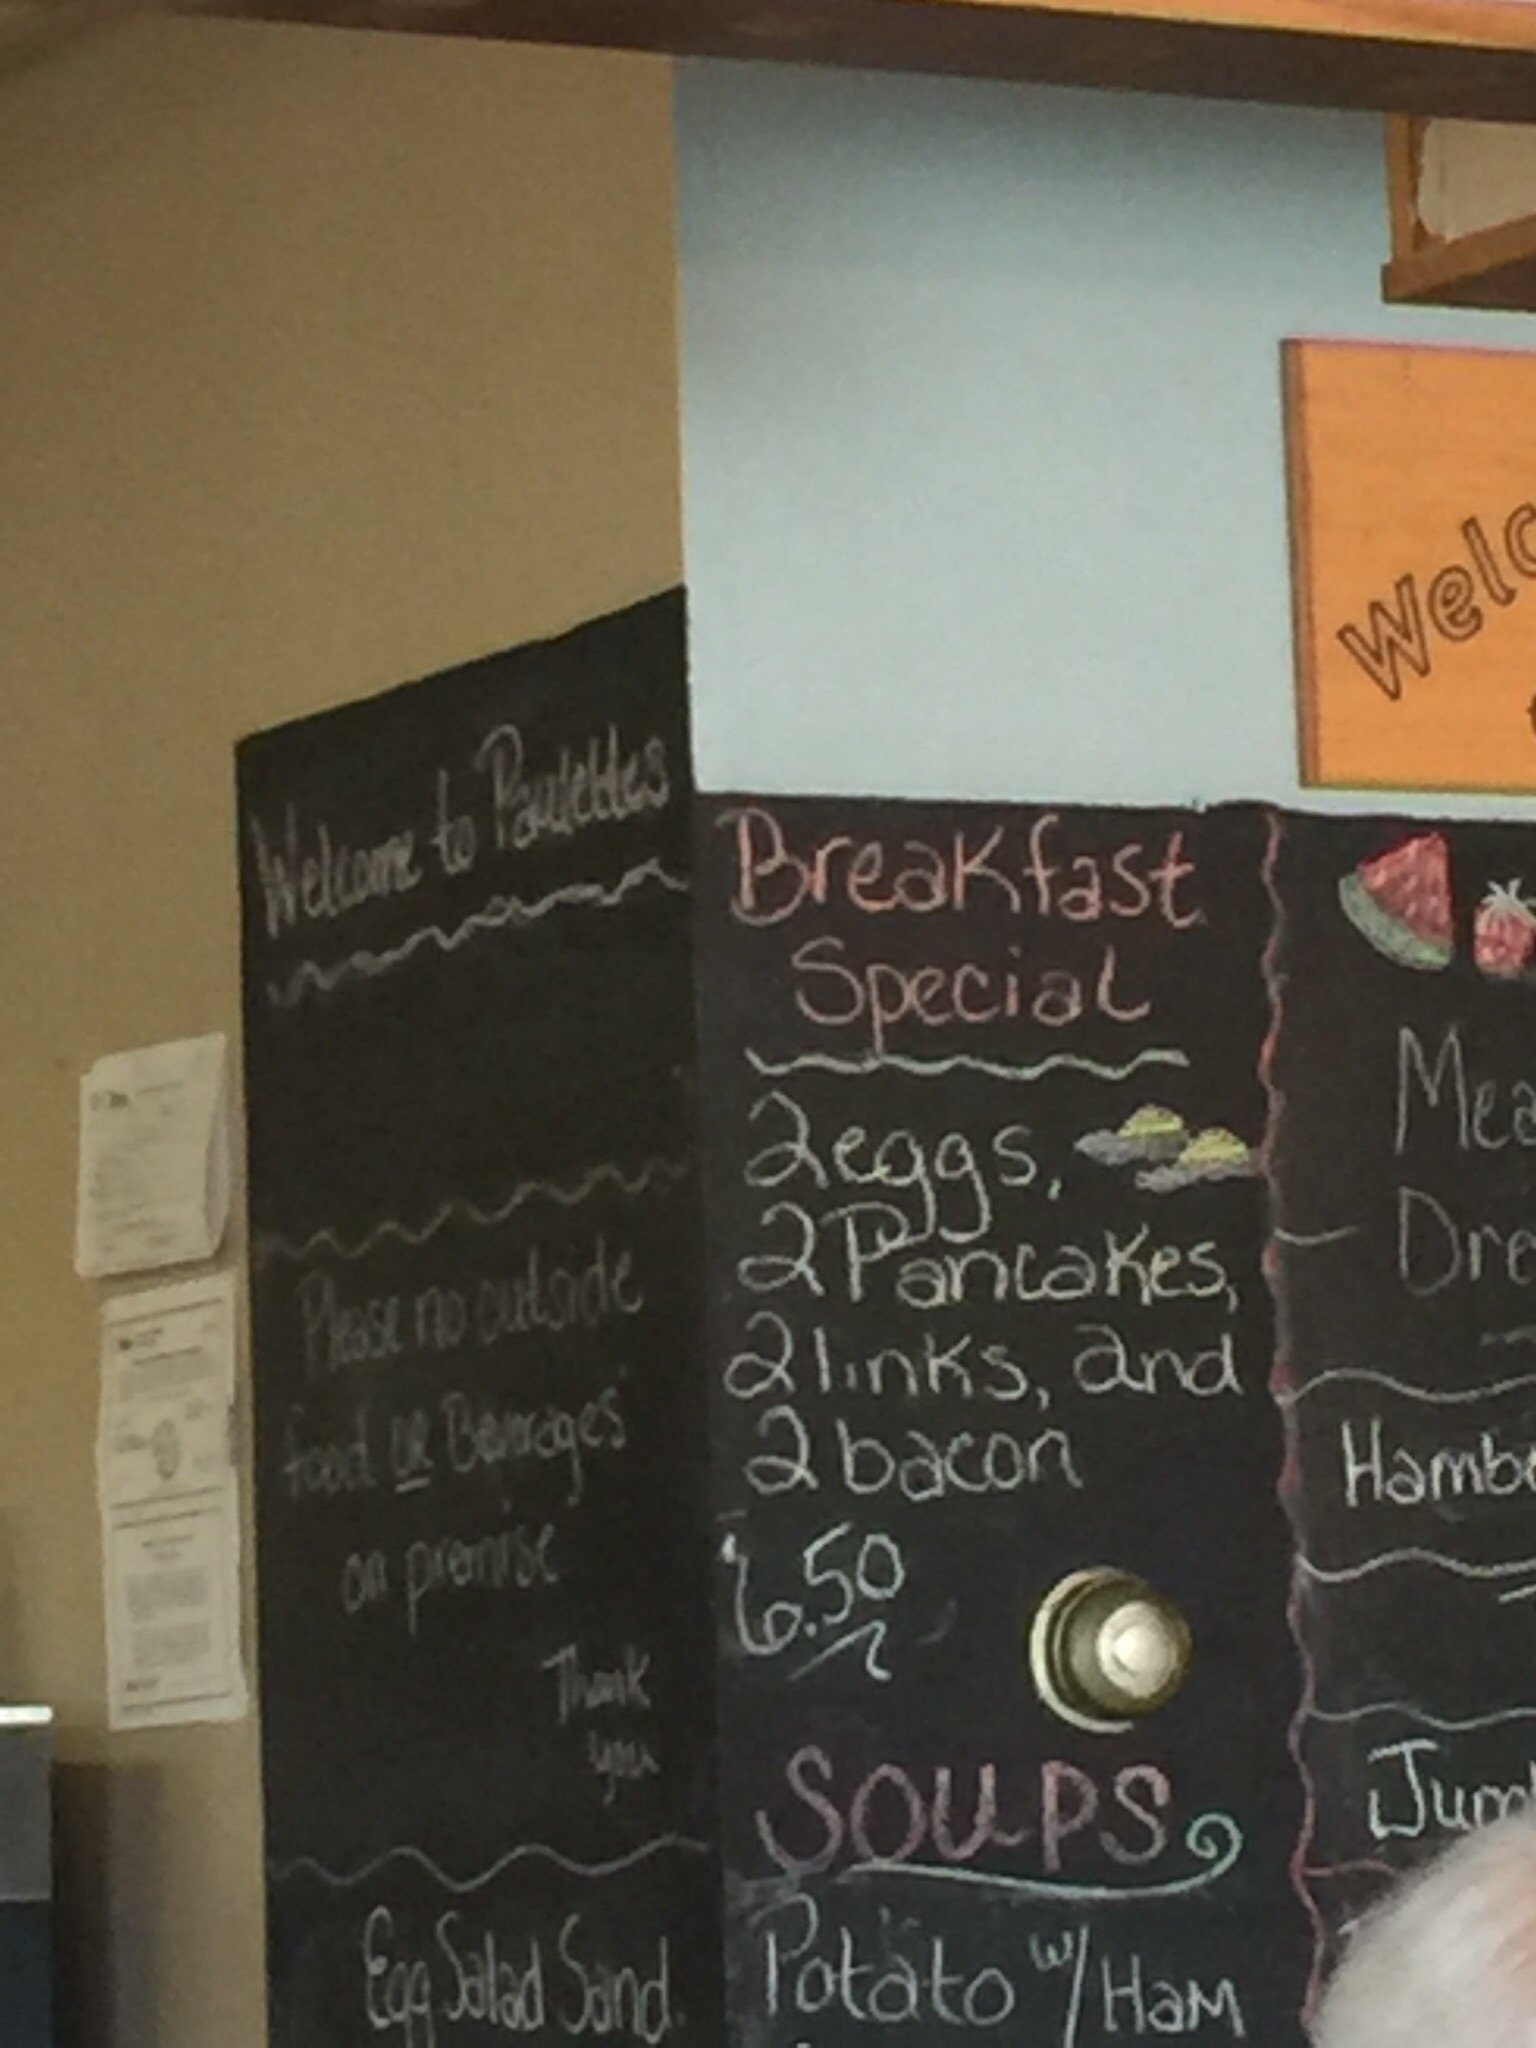 Welcome to Paulettes
Please no outside
food or Beverages
on premise
Thank
you
Egg Salad Sand.
Breakfast
Special
2 eggs,
2 Pancakes,
2 links, and
2 bacon
6.50
SOUPS
Potato w/ Ham
Welc
Mea
Dre
Hambe
Jum